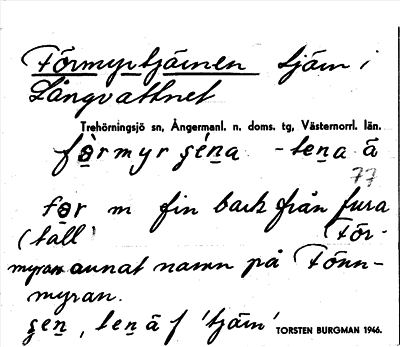 Förmyrtjärnen tjärn i
Långvattnet
Trehörningsjö sn, Ångermanl. n. doms. tg, Västernorrl. län.
förmyr ṣéṇa - teṇa ä
77
før m fin bark från fura
(tall) För-
myran annat namn på Fönn-
myran.
ṣeṇ, teṇ ä f 'tjärn' TORSTEN BURGMAN 1946.